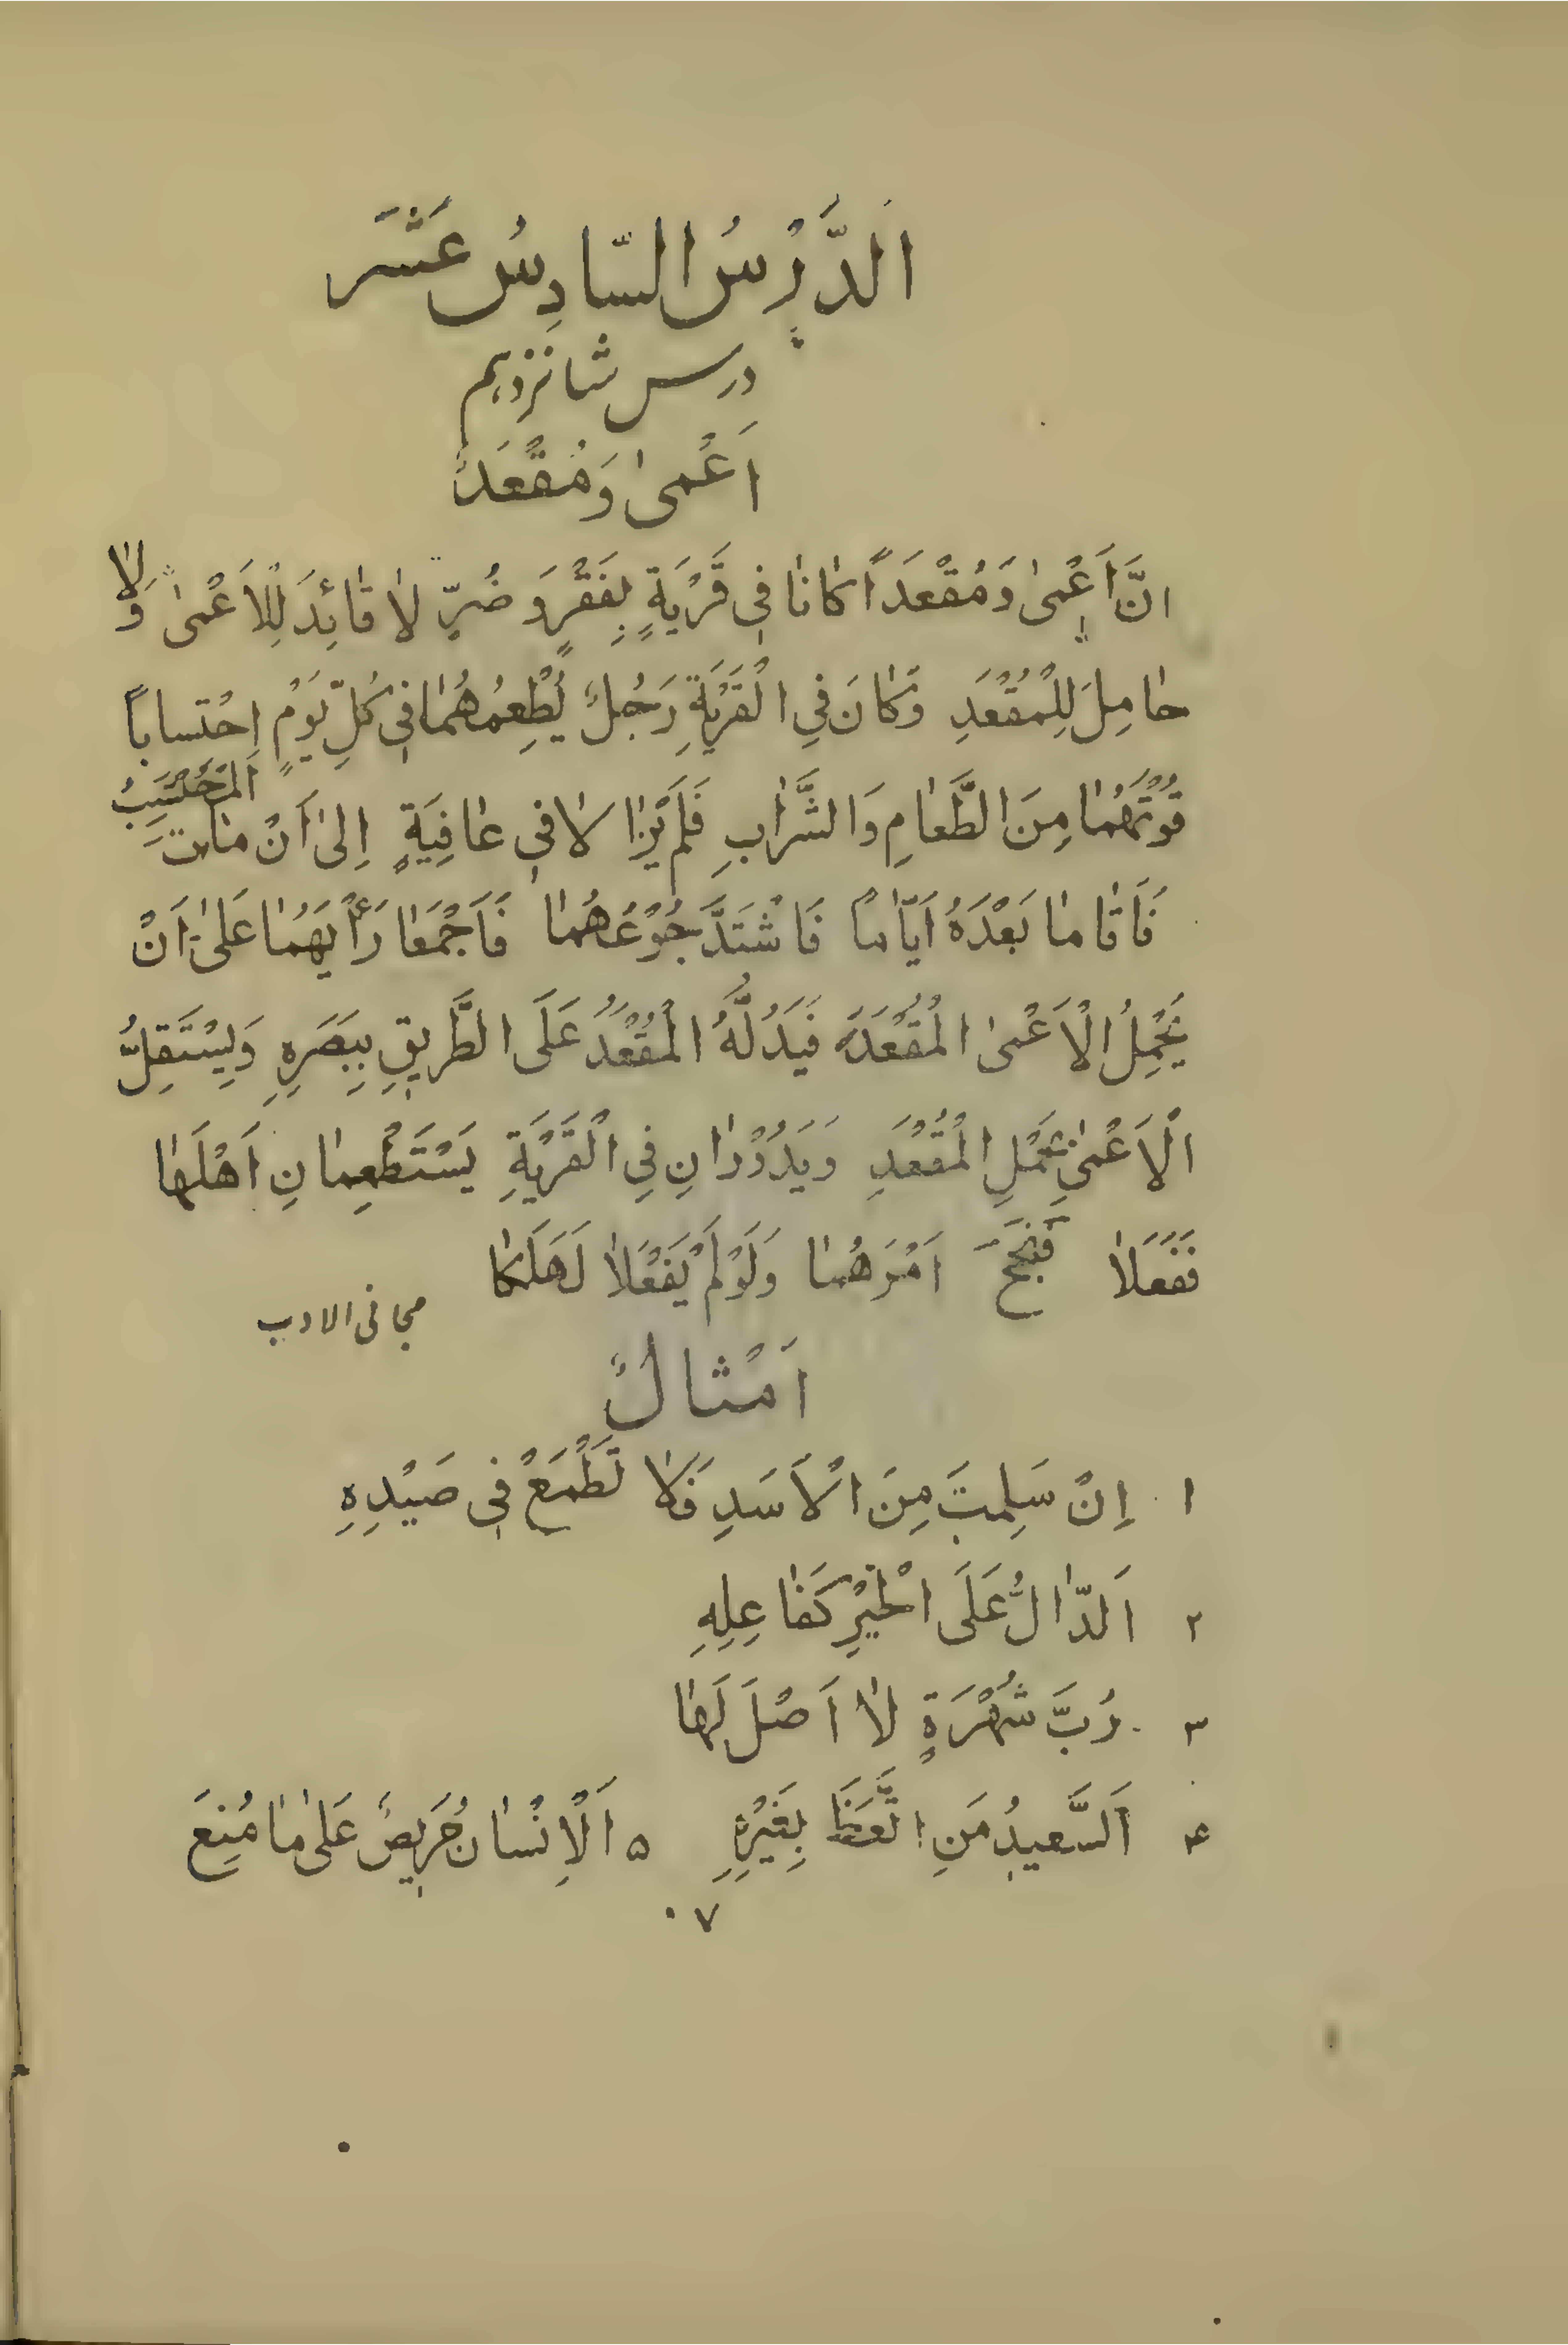 اَلدَّرْسُ السّادِسُ عَشَرَ
درس شانزدہم
اَعْمىٰ وَمُقْعَدٌ
انَّ اَعْمىٰ وَمُقْعَداً كانا فى قَرْيَةٍ بِفَقْرٍ وَ ضُرٍّ لا قائِدَ لِلْاَعْمىٰ وَلا
حامِلَ لِلْمُقْعَدِ وَكانَ فى الْقَرْيَةِ رَجُلٌ يُطْعِمُهُما فى كُلِّ يَوْمٍ اِحْتساباً
قُوْتَهُما مِنَ الطَّعامِ وَالشَّرابِ فَلَمْ يَزالا فى عافِيَةٍ اِلىٰ اَنْ ماتَ الْمُحْتَسِبُ
فَاَقاما بَعْدَهُ اَيّاماً فَاشْتَدَّ جُوْعُهُما فَاَجْمَعا رَأْيَهُما عَلىٰ اَنْ
يَحْمِلَ الْاَعْمىٰ الْمُقْعَدَ فَيَدُلَّهُ الْمُقْعَدُ عَلَى الطَّريقِ بِبَصَرِهِ وَيَسْتَقِلُّ
الْاَعْمىٰ بِحَمْلِ الْمُقْعَدِ وَيَدُوْرانِ فِى الْقَرْيَةِ يَسْتَطْعِمانِ اَهْلَها
فَفَعَلا فَنَجَحَ اَمْرَهُما وَلَوْلَمْ يَفْعَلا لَهَلَكا
مجانى الادب
اَمْثالٌ
١ اِنْ سَلِمتَ مِنَ الْاَسَدِ فَلا تَطْمَعْ فى صَيْدِهِ
٢ اَلدّالُّ عَلَى الْخَيْرِ كَفاعِلِهِ
٣ رُبَّ شُهْرَةٍ لا اَصْلَ لَها
۴ اَلسَّعيدُ مَنِ اتَّعَظَ بِغَيْرِهِ ۵ اَلْاِنْسان حَريصٌ عَلىٰ ما مُنِعَ
٧٠